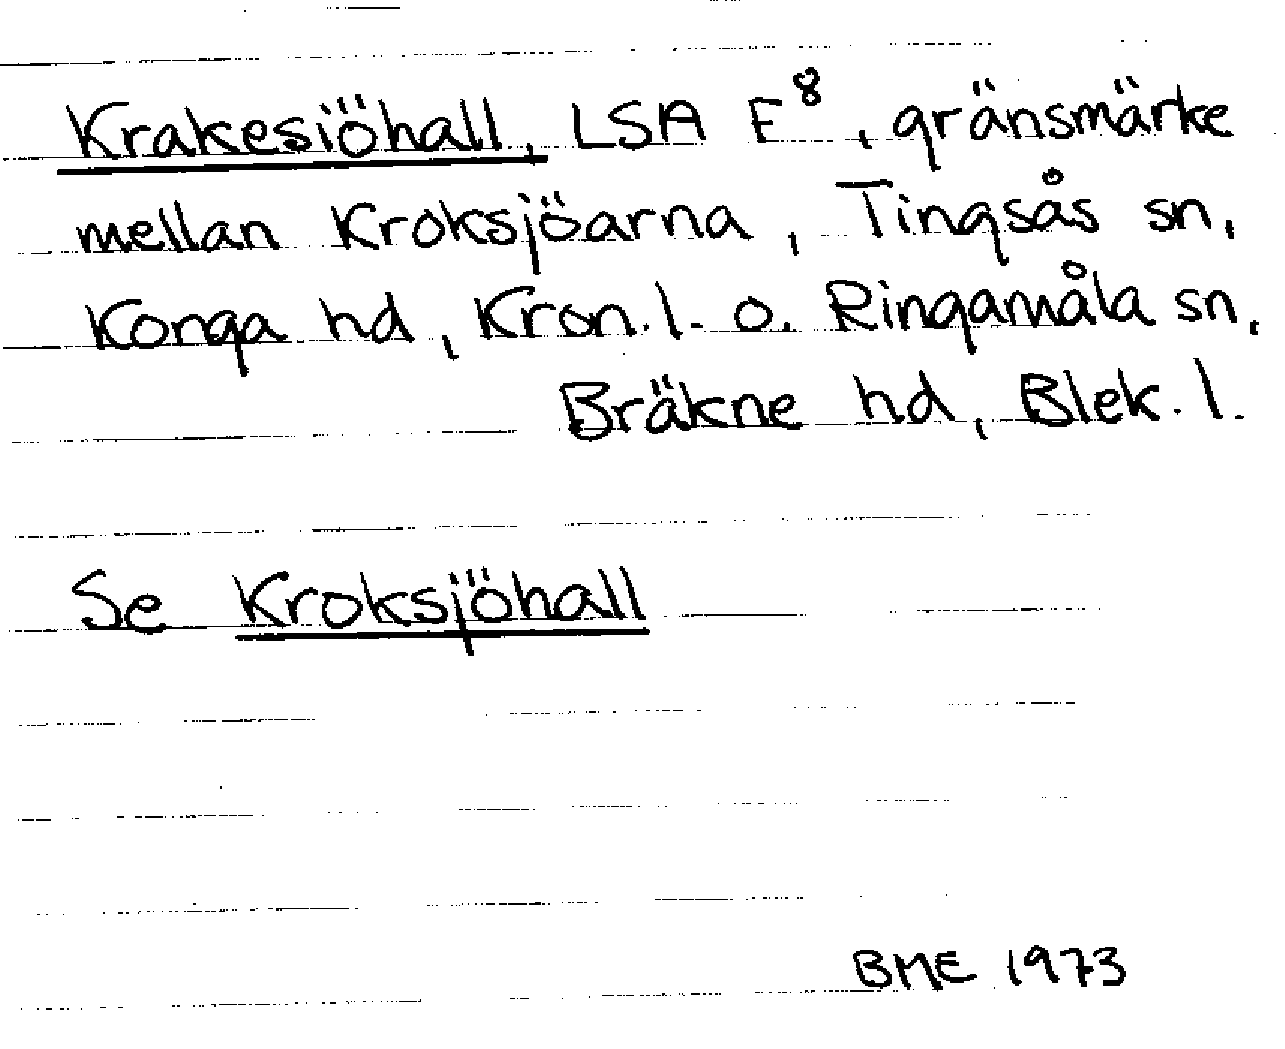 Krakesiöhall, LSA E⁸, gränsmärke
mellan Kroksjöarna, Tingsås sn,
Konga hd, Kron. l. o. Ringamåla sn,
Bräkne hd, Blek. l.
Se Kroksjöhall
BME 1973